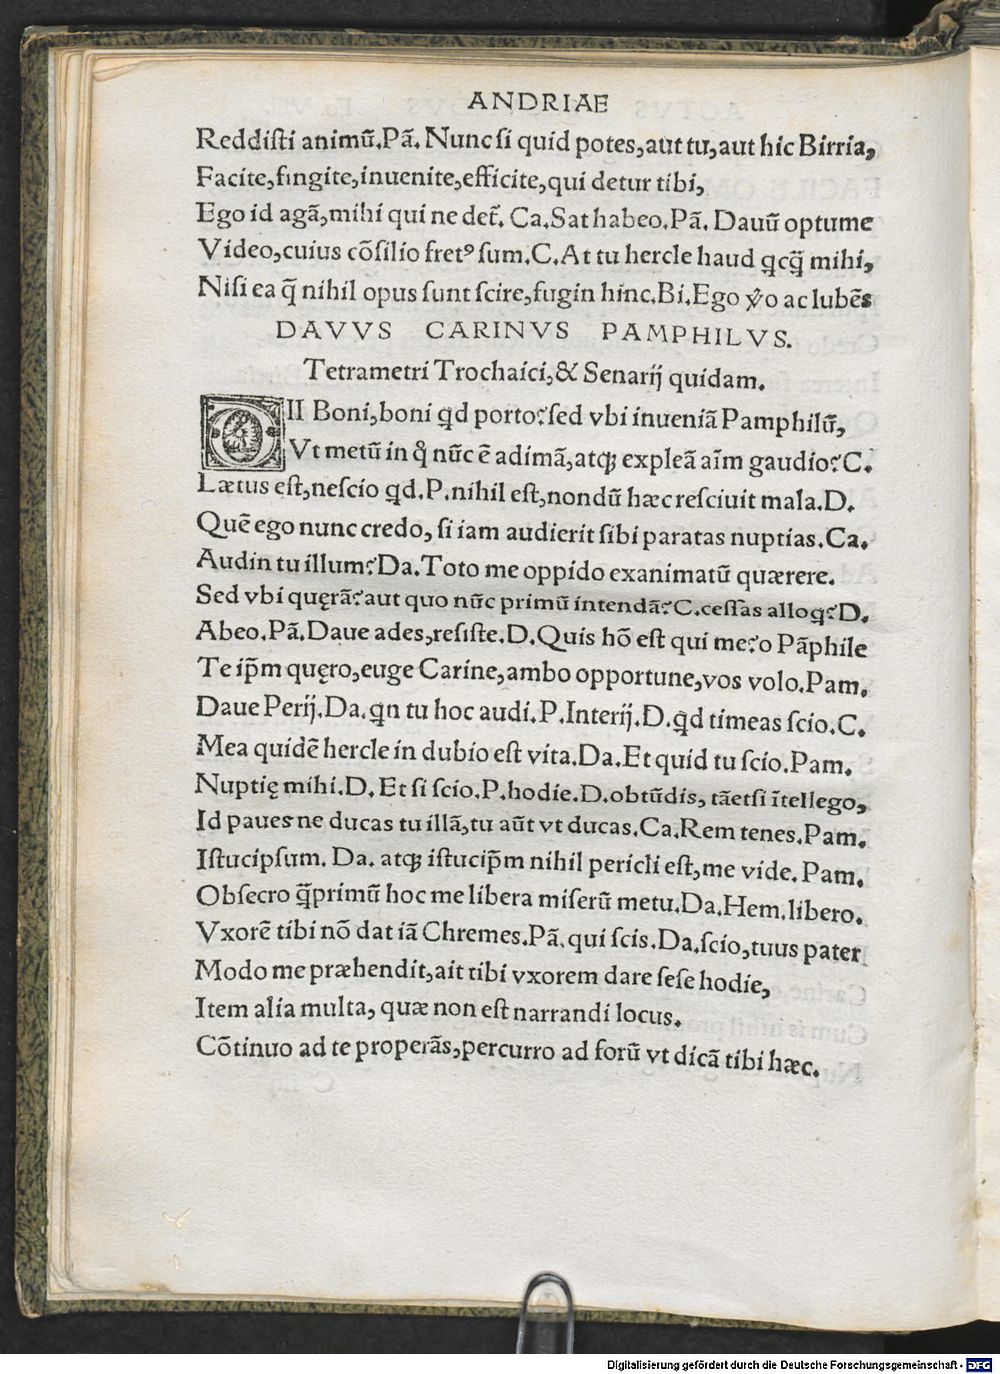 ANDRIAE
Reddiſti animū.Pā. Nunc ſi quid potes,aut tu,aut hic Birria,
Facite,fingite,inuenite,efficite,qui detur tibi,
Ego id agā,mihi qui ne det̃. Ca.Sat habeo.Pā. Dauū optume
Video,cuius cōſilio fretꝰ ſum.C.At tu hercle haud qcq̄ mihi,
Niſi ea q̄ nihil opus ſunt ſcire,fugin hinc.Bi.Ego ꝟo ac lubēs
DAVVS CARINVS PAMPHILVS.
Tetrametri Trochaici,& Senarij quidam.
DII Boni,boni qd porto?ſed vbi inueniā Pamphilū,
Vt metū in q̊ nūc ē adimā,atq; expleā aīm gaudio?C.
Lætus eſt,neſcio qd.P.nihil eſt,nondū hæc reſciuit mala.D.
Quē ego nunc credo, ſi iam audierit ſibi paratas nuptias.Ca.
Audin tu illum?Da.Toto me oppido exanimatū quærere.
Sed vbi quęrā?aut quo nūc primū intendā?C.ceſſas alloq?D.
Abeo.Pā.Daue ades,reſiſte.D.Quis hō eſt qui me?o Pāphile
Te ip̄m quęro,euge Carine,ambo opportune,vos volo.Pam.
Daue Perij.Da.qn tu hoc audi.P.Interij.D.qd timeas ſcio.C.
Mea quidē hercle in dubio eſt vita.Da.Et quid tu ſcio.Pam.
Nuptię mihi.D.Et ſi ſcio.P.hodie.D.obtūdis, tāetſi ītellego,
Id paues ne ducas tu illā,tu aūt vt ducas.Ca.Rem tenes.Pam.
Iſtucipſum. Da. atq; iſtucip̄m nihil pericli eſt,me vide.Pam.
Obſecro q̄primū hoc me libera miſerū metu.Da.Hem.libero.
Vxorē tibi nō dat iā Chremes.Pā.qui ſcis.Da.ſcio,tuus pater
Modo me præhendit,ait tibi vxorem dare ſeſe hodie,
Item alia multa, quæ non eſt narrandi locus.
Cōtinuo ad te properās,percurro ad forū vt dicā tibi hæc.
Digitalisierung gefördert durch die Deutsche Forschungsgemeinschaft - DFG